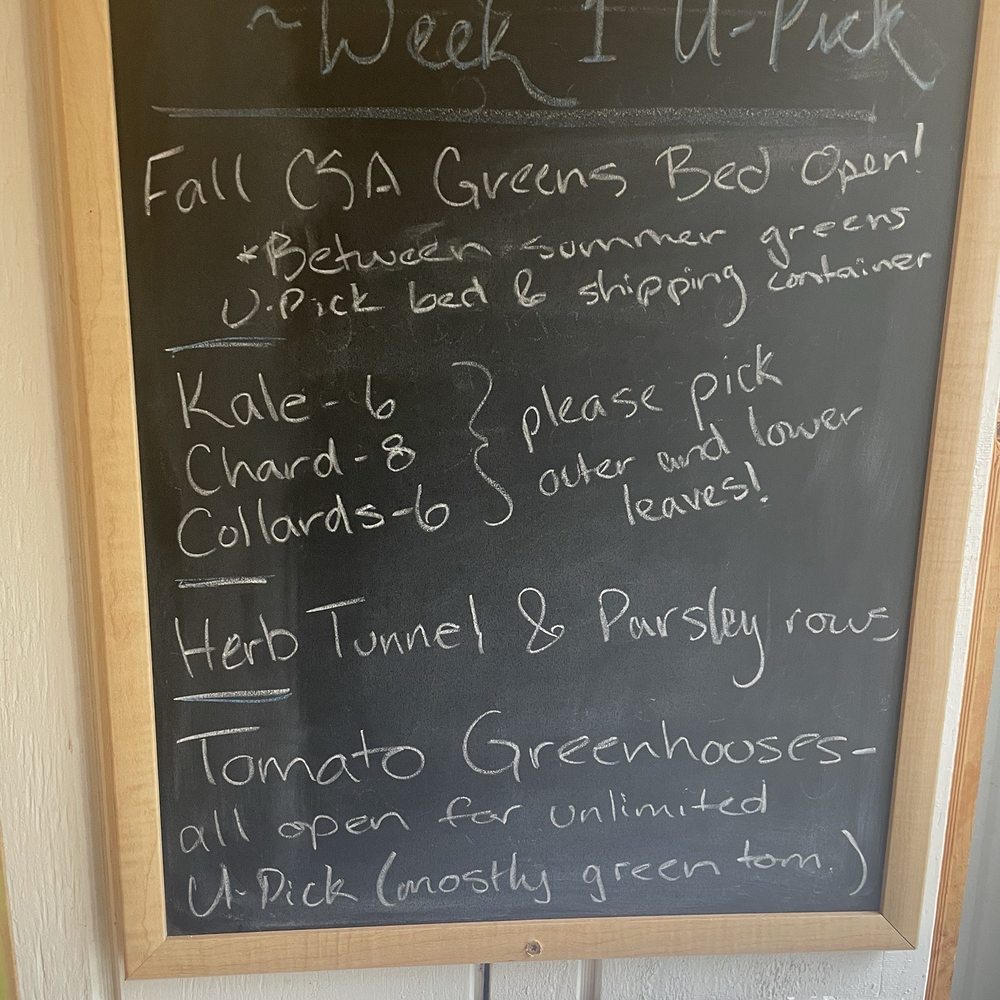 ~Week 1 U-Pick
Fall CSA Greens Bed Open!
*Between summer greens
U-Pick bed & shipping container
Kale - 6
Chard - 8
Collards - 6
please pick
outer and lower
leaves!
Herb Tunnel & Parsley rows
Tomato Greenhouses-
all open for unlimited
U-Pick (mostly green tom.)